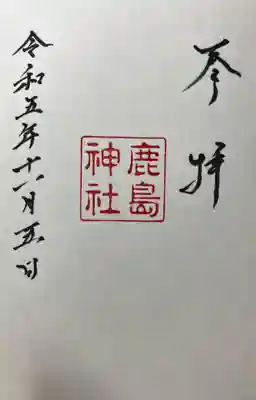 参拝
鹿島
神社
令和五年十二月五日